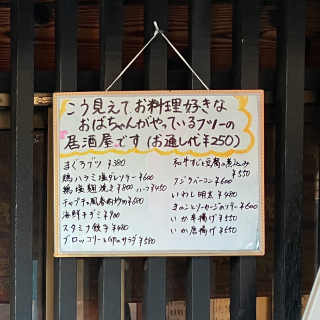 こう見えてお料理好きな
おばちゃんがやっているフツーの
居酒屋です(お通し代¥250)
まぐろブツ ¥380
鶏ハラミ塩ダレソテー ¥600
鶏塩麹焼き ¥800 ハーフ¥450
チャプチェ風春雨炒め ¥650
海鮮チヂミ ¥700
スタミナ餃子 ¥480
ブロッコリーとゆで卵のサラダ ¥580
和牛すじと豆腐の煮込み
¥550
クジラベーコン ¥600
いわし明太 ¥480
きのことソーセージのソテー ¥600
いか串揚げ ¥550
いか唐揚げ ¥550